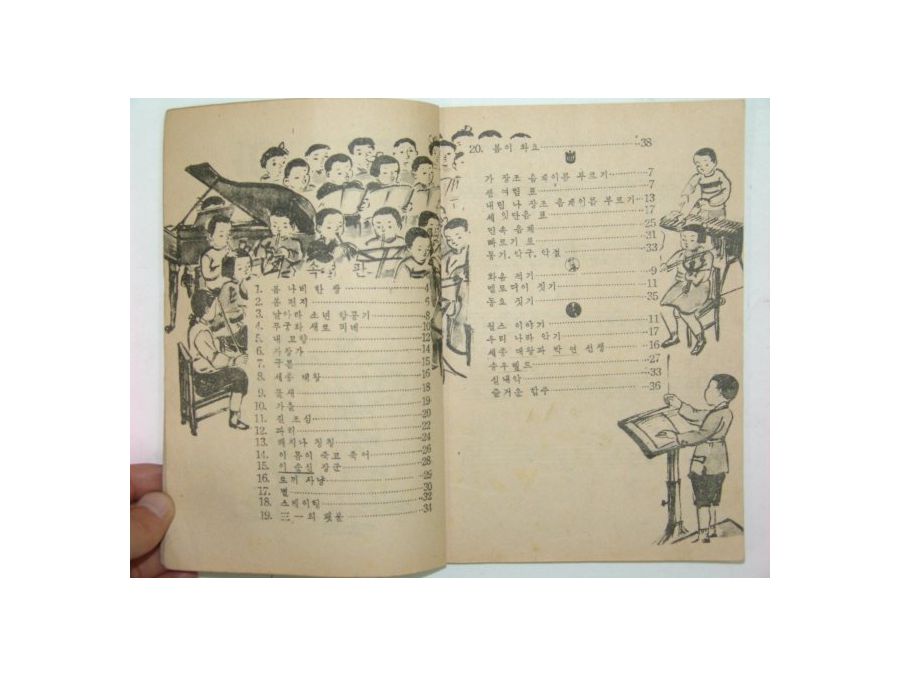 속 판
1. 봄 나비 한 쌍 4
2. 봄 편지 6
3. 날아라 소년 항공기 8
4. 무궁화 새로 피네 10
5. 내 고향 12
6. 자장가 14
7. 구름 15
8. 세종 대왕 16
9. 물새 18
10. 가을 19
11. 길 조심 20
12. 파리 22
13. 쾌지나 칭칭 24
14. 이 몸이 죽고 죽어 26
15. 이 순신 장군 28
16. 토끼 사냥 29
17. 별 30
18. 스케이팅 32
19. 三一의 횃불 34
20. 봄이 와요 38
가 장조 음계이름 부르기 7
셈 여림 표 7
내림 나 장조 음계이름 부르기 13
세 잇단음 표 17
민속 음계 25
빠르기 표 31
동기.악구.악절 33
화음 적기 9
멜로디이 짓기 11
동요 짓기 35
월즈 이야기 11
우리 나라 악기 17
세종 대왕과 박 연 선생 16
27
실내악 33
즐거운 합주 36